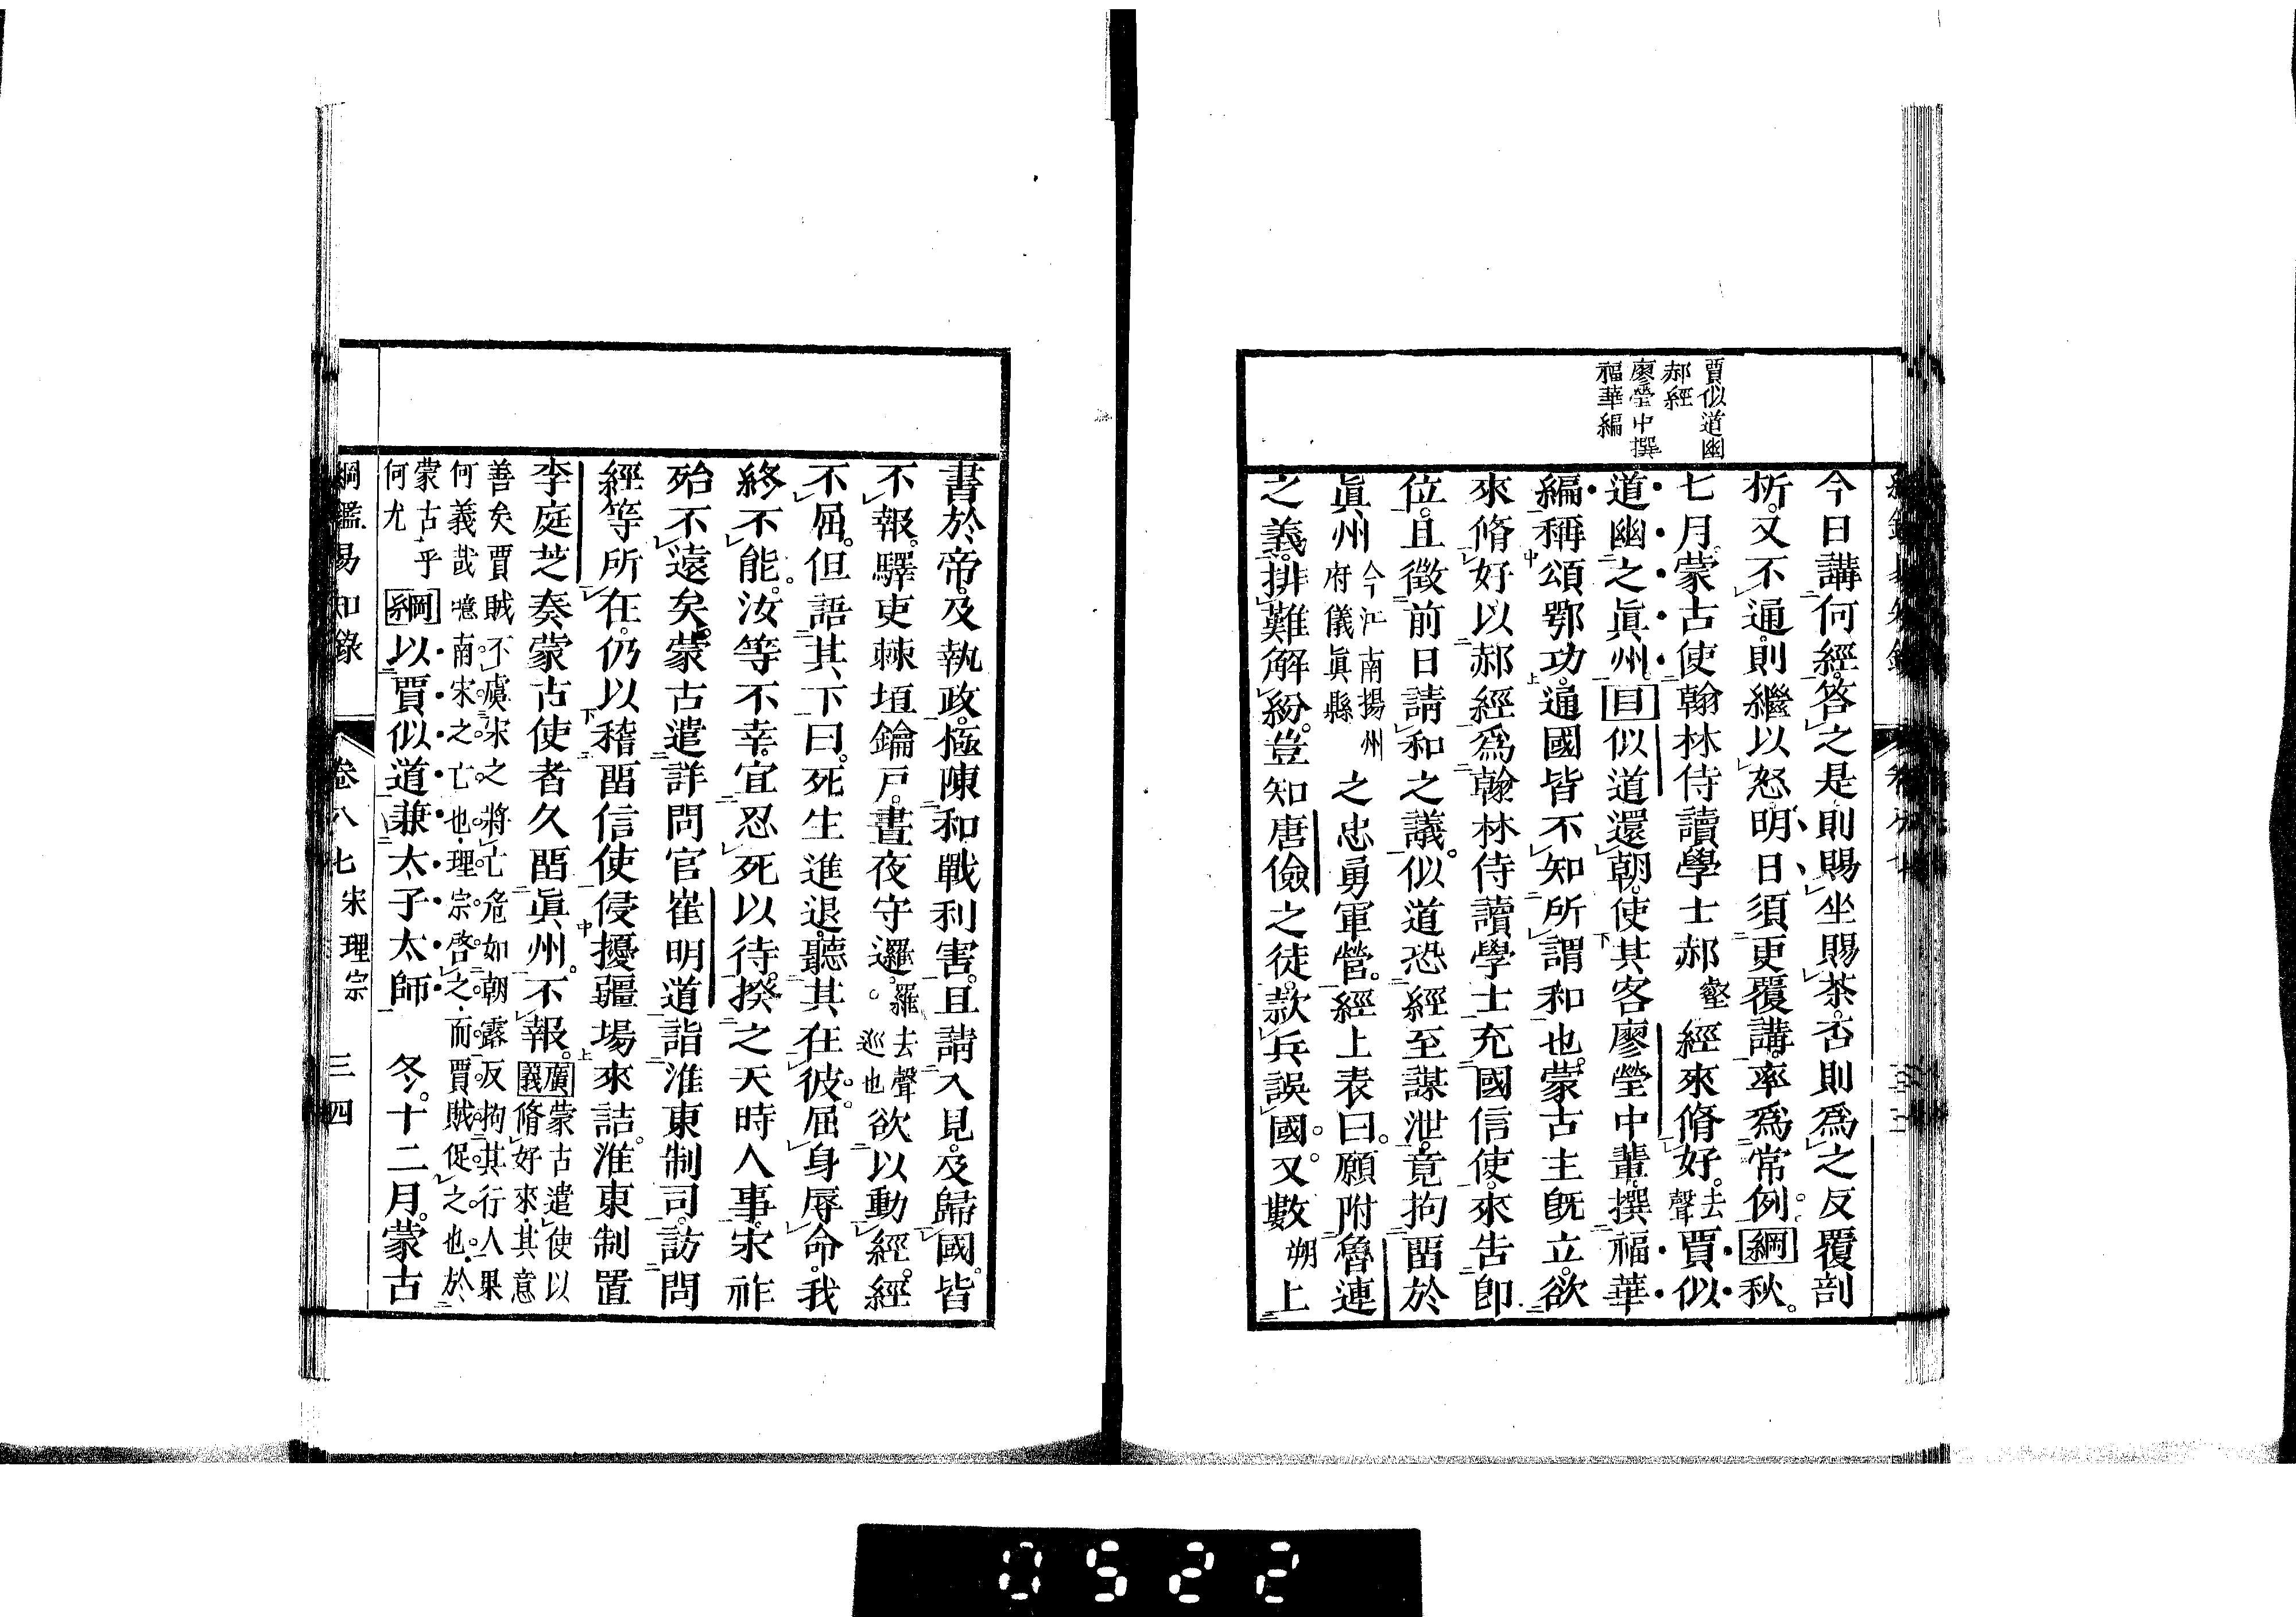 賈似道幽
郝經
廖瑩中撰
福華編
今日講何經答之是則賜坐賜茶否則爲之反覆剖
析又不通則繼以怒明日須更覆講率爲常例綱秋
七月蒙古使翰林侍讀學士郝壑經來脩好去聲賈似
道幽之眞州目似道還朝使其客廖瑩中輩撰福華
編稱頌鄂功通國皆不知所謂和也蒙古主旣立欲
來脩好以郝經爲翰林侍讀學士充國信使來告卽
位且徵前日請和之議似道恐經至謀泄竟拘畱於
眞州今江南揚州府儀眞縣之忠勇軍營經上表曰願附魯連
之義排難解紛豈知唐儉之徒款兵誤國又數朔上
書於帝及執政極陳和戰利害且請入見及歸國皆
不報驛吏棘垣鑰戸晝夜守邏羅去聲巡也欲以動經經
不屈但語其下曰死生進退聽其在彼屈身辱命我
終不能汝等不幸宜忍死以待揆之天時人事宋祚
殆不遠矣蒙古遣詳問官崔明道詣淮東制司訪問
經等所在仍以稽畱信使侵擾疆場來詰淮東制置
李庭芝奏蒙古使者久畱眞州不報廣義蒙古遣使以脩好來其意
善矣賈賊不虞宋之將亡危如朝露反拘其行人果
何義哉噫南宋之亡也理宗啓之而賈賊促之也於
蒙古乎何尤綱以賈似道兼太子太師　冬十二月蒙古
綱鑑易知錄　卷八七宋理宗　三四
0522